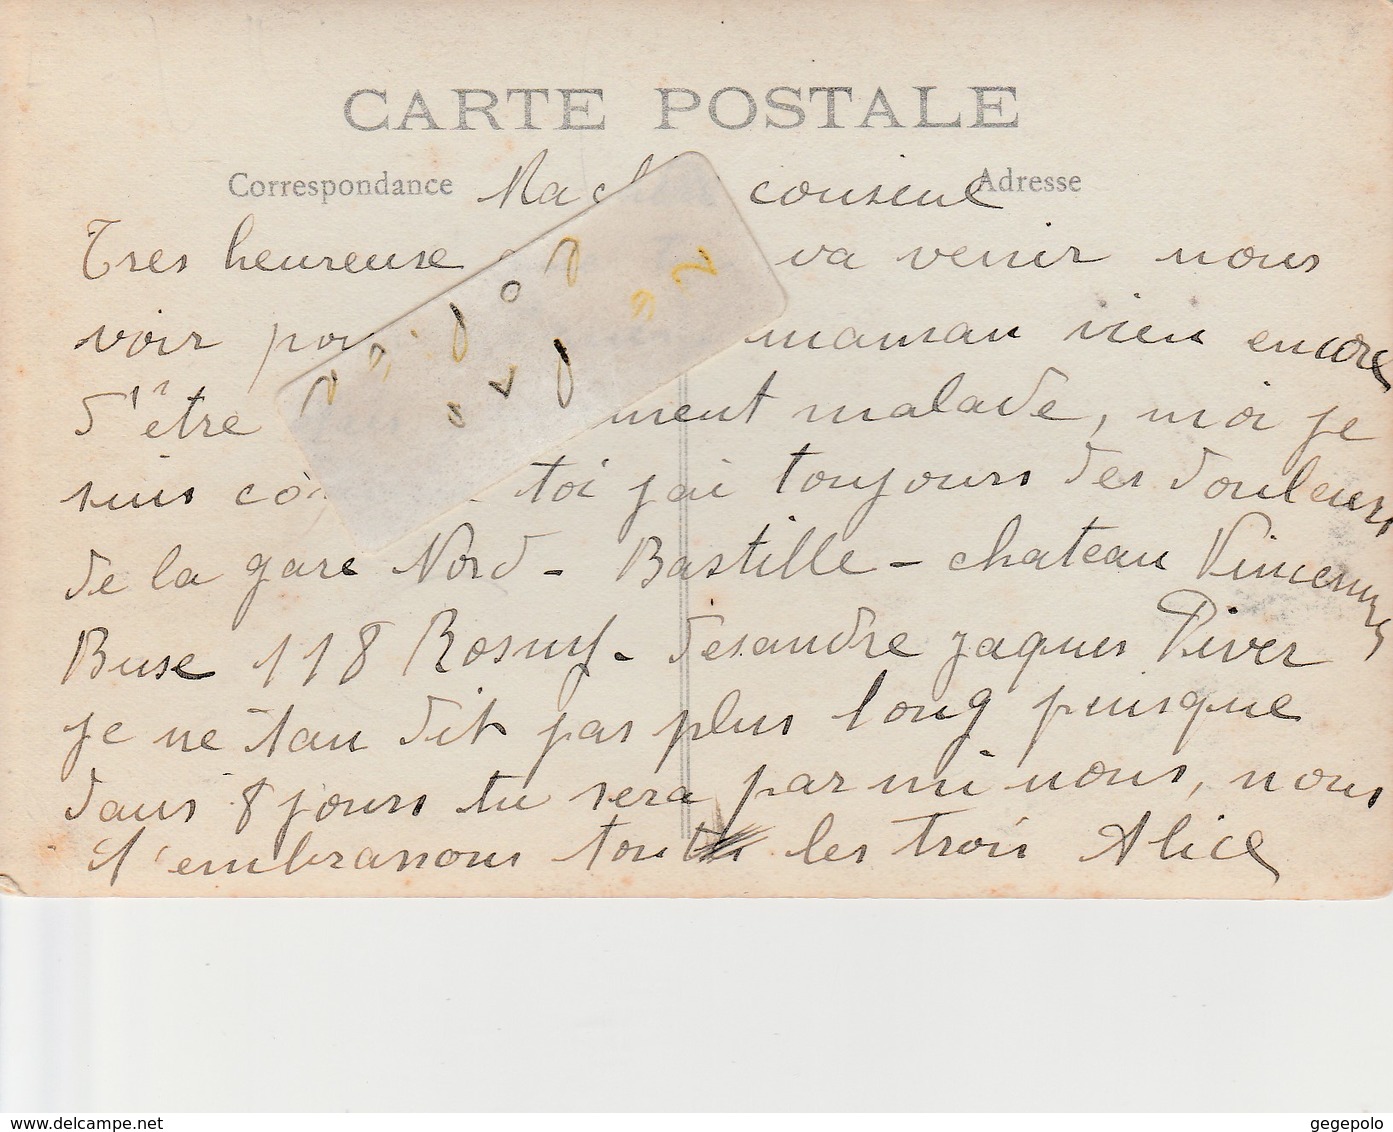 CARTE POSTALE
Correspondance Ma couseine Adresse
Tres heureuse va venir nous
voir maman vien encore
d'être ment malade, moi je
suis toi j'ai toujours des douleurs
de la gare Nord - Bastille - chateau Vincennes
Buse 118 Rosny - desandre jaques River
je ne tan dit pas plus long puisque
dans 8 jours tu sera parmi nous, nous
t'embrassons tout les trois Alice
www.delcampe.net
gegepolo